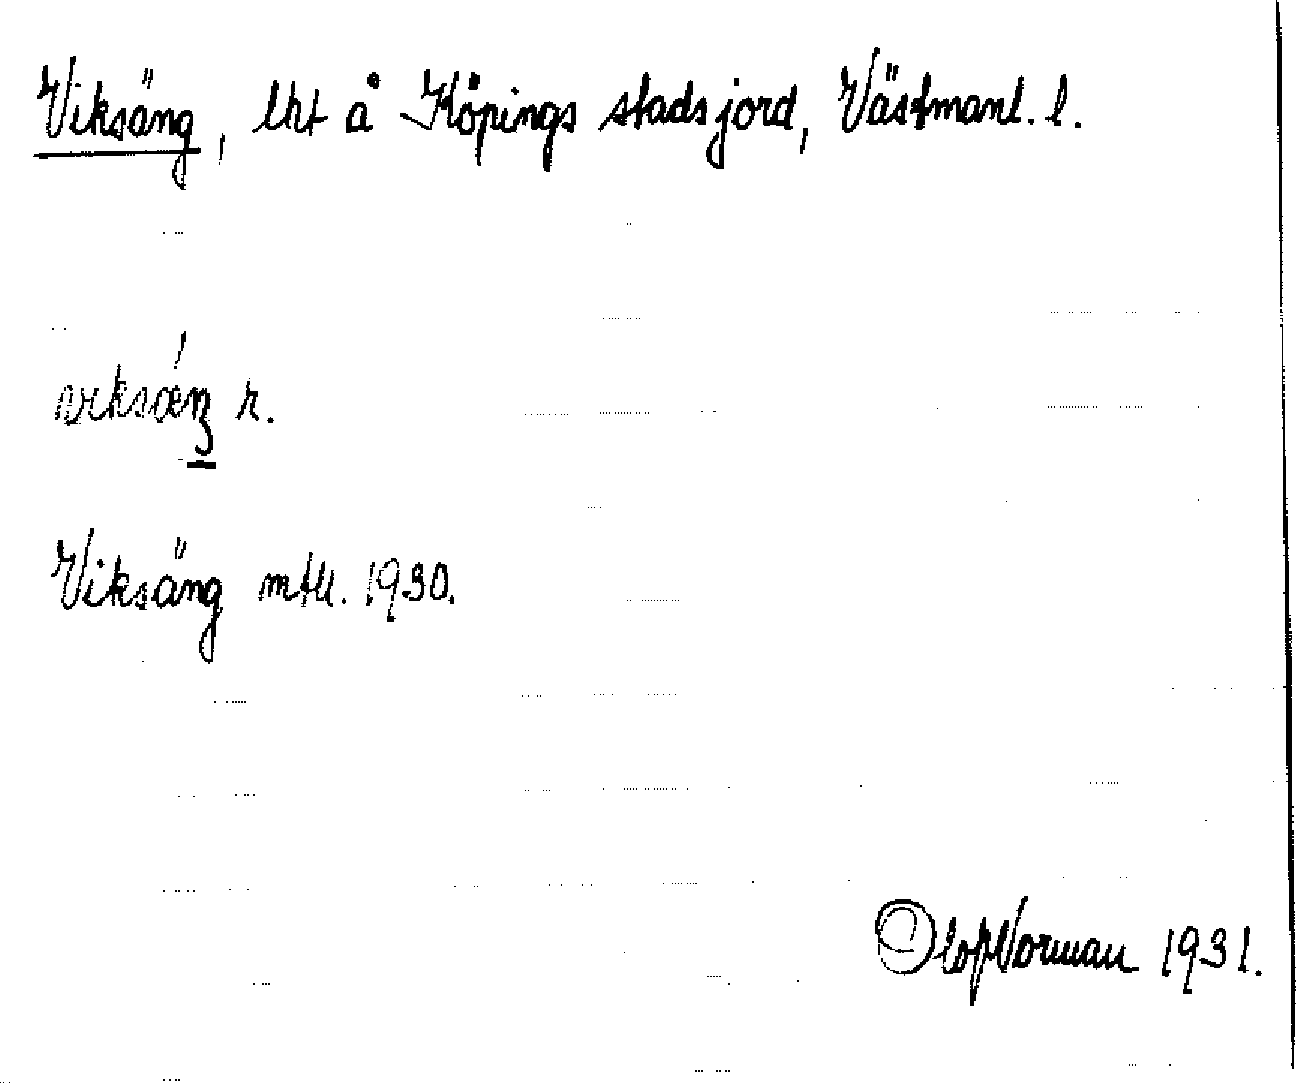 Viksäng, lht å Köpings stadsjord, Västmanl. l.
r.
Viksäng mtll. 1930.
Olof Norman 1931.